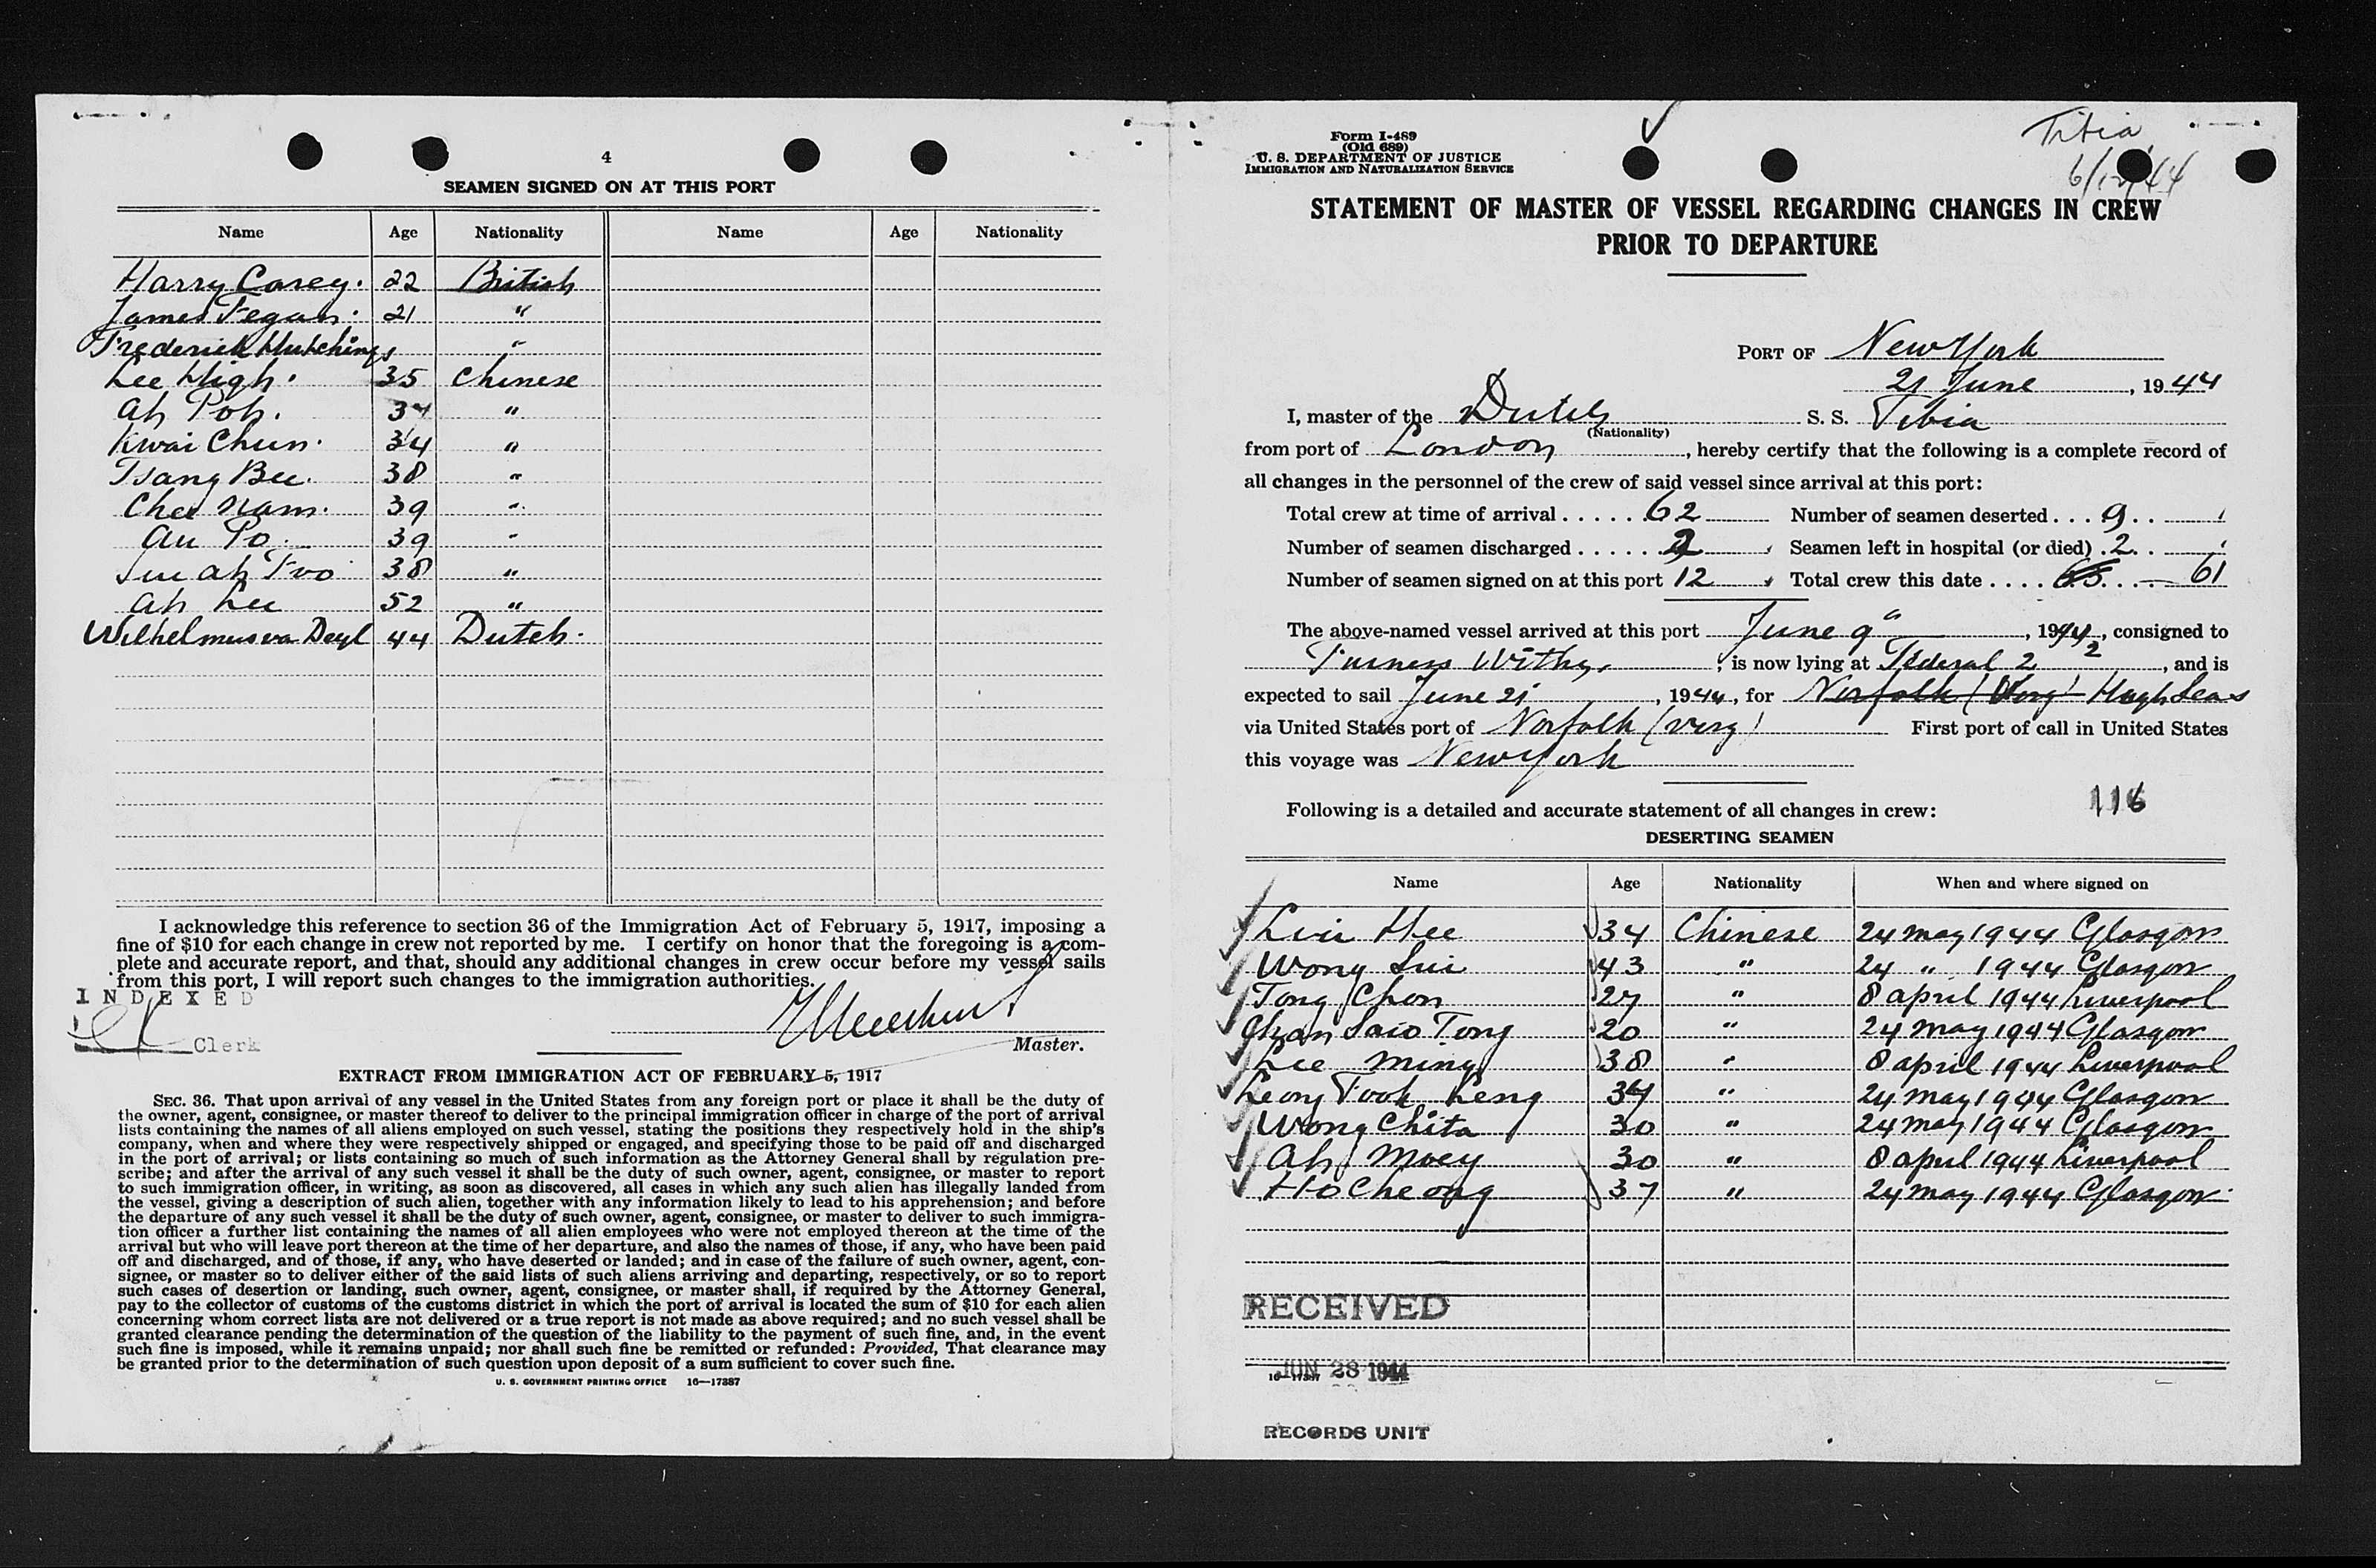 4
SEAMEN SIGNED ON AT THIS PORT
Name Age Nationality Name Age Nationality
Harry Casey. 22 British
James Fegan. 21 "
Frederick Hutchings "
Lee High. 35 Chinese
Ah Poh. "
Kwai Chun. 34 "
Tsang Bee. 38 "
Chee Nam. 39 "
Au Po. 39 "
Ah 38 "
Ah Lee 52 "
Wilhelmus va Deyl 44 Dutch.
I acknowledge this reference to section 36 of the Immigration Act of February 5, 1917, imposing a
fine of $10 for each change in crew not reported by me. I certify on honor that the foregoing is a com-
plete and accurate report, and that, should any additional changes in crew occur before my vessel sails
from this port, I will report such changes to the immigration authorities.
INDEXED
Clerk
Master.
EXTRACT FROM IMMIGRATION ACT OF FEBRUARY 5, 1917
SEC. 36. That upon arrival of any vessel in the United States from any foreign port or place it shall be the duty of
the owner, agent, consignee, or master thereof to deliver to the principal immigration officer in charge of the port of arrival
lists containing the names of all aliens employed on such vessel, stating the positions they respectively hold in the ship's
company, when and where they were respectively shipped or engaged, and specifying those to be paid off and discharged
in the port of arrival; or lists containing so much of such information as the Attorney General shall by regulation pre-
scribe; and after the arrival of any such vessel it shall be the duty of such owner, agent, consignee, or master to report
to such immigration officer, in writing, as soon as discovered, all cases in which any such alien has illegally landed from
the vessel, giving a description of such alien, together with any information likely to lead to his apprehension; and before
the departure of any such vessel it shall be the duty of such owner, agent, consignee, or master to deliver to such immigra-
tion officer a further list containing the names of all alien employees who were not employed thereon at the time of the
arrival but who will leave port thereon at the time of her departure, and also the names of those, if any, who have been paid
off and discharged, and of those, if any, who have deserted or landed; and in case of the failure of such owner, agent, con-
signee, or master so to deliver either of the said lists of such aliens arriving and departing, respectively, or so to report
such cases of desertion or landing, such owner, agent, consignee, or master shall, if required by the Attorney General,
pay to the collector of customs of the customs district in which the port of arrival is located the sum of $10 for each alien
concerning whom correct lists are not delivered or a true report is not made as above required; and no such vessel shall be
granted clearance pending the determination of the question of the liability to the payment of such fine, and, in the event
such fine is imposed, while it remains unpaid; nor shall such fine be remitted or refunded: Provided, That clearance may
be granted prior to the determination of such question upon deposit of a sum sufficient to cover such fine.
U. S. GOVERNMENT PRINTING OFFICE 16—17387
Form I-489
(Old 689)
U. S. DEPARTMENT OF JUSTICE
IMMIGRATION AND NATURALIZATION SERVICE
Tibia
6/12/44
STATEMENT OF MASTER OF VESSEL REGARDING CHANGES IN CREW
PRIOR TO DEPARTURE
PORT OF New York
21 June, 1944
I, master of the Dutch S. S. Tibia
(Nationality)
from port of London, hereby certify that the following is a complete record of
all changes in the personnel of the crew of said vessel since arrival at this port:
Total crew at time of arrival ..... 62 Number of seamen deserted ... 9
Number of seamen discharged ..... 2 Seamen left in hospital (or died) . 2
Number of seamen signed on at this port 12 Total crew this date .... 63 61
The above-named vessel arrived at this port June 9", 1944, consigned to
Furness Withy, is now lying at Federal 2, and is
expected to sail June 21, 1944, for Norfolk (Virg) High Seas
via United States port of Norfolk (Virg) First port of call in United States
this voyage was New York
Following is a detailed and accurate statement of all changes in crew:
116
DESERTING SEAMEN
Name Age Nationality When and where signed on
Hee 34 Chinese 24 May 1944 Glasgow
Wong Sui 43 " 24 " 1944 Glasgow
Tong Chon 27 " 8 april 1944 Liverpool
Chan Saio Tong 20 " 24 May 1944 Glasgow
Lee Ming 38 " 8 april 1944 Liverpool
Leong Fook Leng 34 " 24 May 1944 Glasgow
Wong Chita 30 " 24 May 1944 Glasgow
Ah Moey 30 " 8 april 1944 Liverpool
Ho Cheong 37 " 24 May 1944 Glasgow
RECEIVED
JUN 28 1944
16—17387
RECORDS UNIT